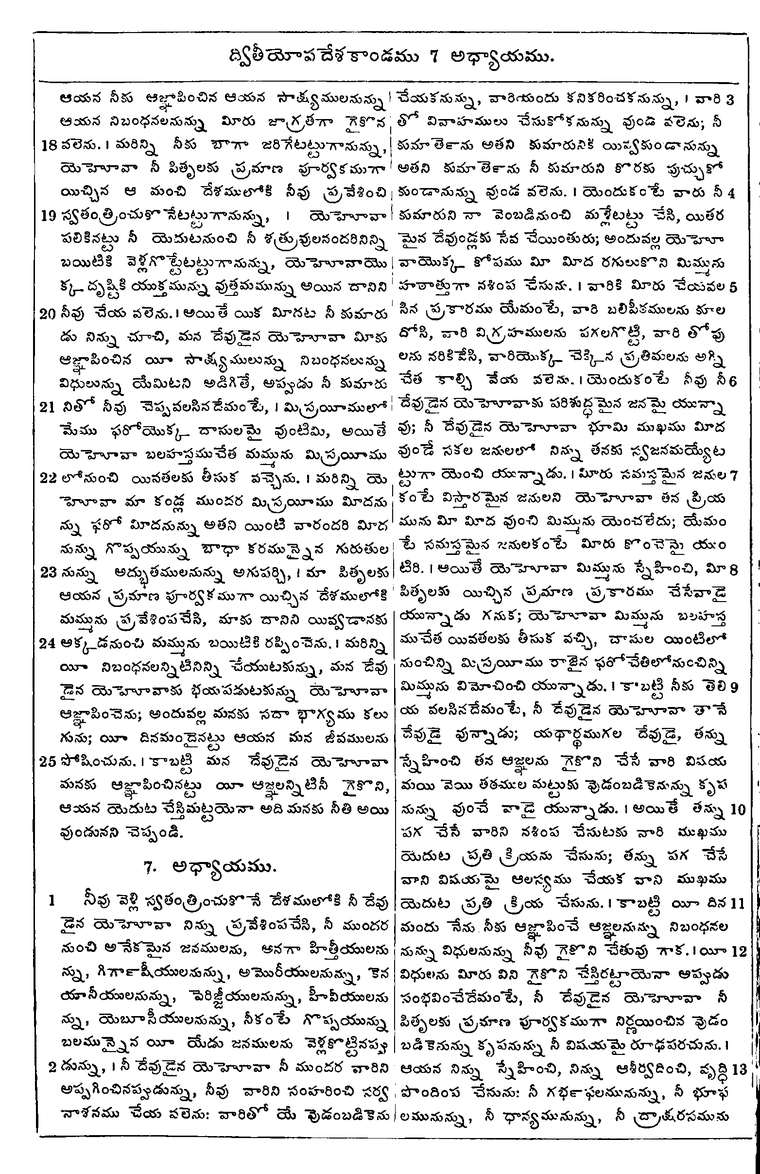 ద్వితీయోపదేశకాండము 7 అధ్యాయము.
ఆయన నీకు ఆజ్ఞాపించిన ఆయన సాక్ష్యములనున్ను
ఆయన నిబంధనలనున్ను మీరు జాగ్రతగా గైకొన
18 వలెను. । మరిన్ని నీకు బాగా జరిగేటట్టుగానున్ను,
యెహోవా నీ పితృలకు ప్రమాణ పూర్వకముగా
యిచ్చిన ఆ మంచి దేశములోకి నీవు ప్రవేశించి
19 స్వతంత్రించుకొనేటట్టుగానున్ను, । యెహోవా
పలికినట్టు నీ యెదుటనుంచి నీ శత్రువులనందరినిన్ని
బయిటికి వెళ్లగొట్టేటట్టుగానున్ను, యెహోవాయొ
క్క దృష్టికి యుక్తమున్ను వుత్తమమున్ను అయిన దానిని
20 నీవు చేయ వలెను. । అయితే యిక మీగట నీ కుమారు
డు నిన్ను చూచి, మన దేవుడైన యెహోవా మీకు
ఆజ్ఞాపించిన యీ సాక్ష్యములున్ను నిబంధనలున్ను
విధులున్ను యేమిటని అడిగితే, అప్పుడు నీ కుమారు
21 నితో నీవు చెప్పవలసినదేమంటే, । మిస్రయీములో
మేము ఫరోయొక్క దాసులమై వుంటిమి, అయితే
యెహోవా బలహస్తముచేత మమ్మును మిస్రయీము
22 లోనుంచి యివతలకు తీసుక వచ్చెను. । మరిన్ని యె
హోవా మా కండ్ల ముందర మిస్రయీము మీదను
న్ను ఫరో మీదనున్ను అతని యింటి వారందరి మీద
నున్ను గొప్పయున్ను బాధా కరమున్నైన గురుతుల
23 నున్ను అద్భుతములనున్ను అగుపర్చి, । మా పితృలకు
ఆయన ప్రమాణ పూర్వకముగా యిచ్చిన దేశములోకి
మమ్మును ప్రవేశింపచేసి, మాకు దానిని యివ్వడానకు
24 అక్కడనుంచి మమ్మును బయిటికి రప్పించెను. । మరిన్ని
యీ నిబంధనలన్నిటినిన్ని చేయుటకున్ను, మన దేవు
డైన యెహోవాకు భయపడుటకున్ను యెహోవా
ఆజ్ఞాపించెను; అందువల్ల మనకు సదా భాగ్యము కలు
గును; యీ దినమందైనట్టు ఆయన మన జీవములను
25 పోషించును. । కాబట్టి మన దేవుడైన యెహోవా
మనకు ఆజ్ఞాపించినట్టు యీ ఆజ్ఞలన్నిటినీ గైకొని,
ఆయన యెదుట చేస్తిమట్టయెనా అది మనకు నీతి అయి
వుండునని చెప్పండి.
7. అధ్యాయము.
1 నీవు వెళ్లి స్వతంత్రించుకొనే దేశములోకి నీ దేవు
డైన యెహోవా నిన్ను ప్రవేశింపచేసి, నీ ముందర
నుంచి అనేకమైన జనములను, అనగా హిత్తీయులను
న్ను, గిర్గాషీయులనున్ను, అమోరీయులనున్ను, కెన
యానీయులనున్ను, పెరిజ్జీయులనున్ను, హీవీయులను
న్ను, యెబూసీయులనున్ను, నీకంటే గొప్పయున్ను
బలమున్నైన యీ యేడు జనములను వెళ్లకొట్టినప్పు
2 డున్ను, । నీ దేవుడైన యెహోవా నీ ముందర వారిని
అప్పగించినప్పుడున్ను, నీవు వారిని సంహరించి సర్వ
నాశనము చేయ వలెను: వారితో యే వుడంబడికెను
చేయకనున్ను, వారియందు కనికరించకనున్ను, । వారి 3
తో వివాహములు చేసుకోకనున్ను వుండ వలెను; నీ
కుమార్తెను అతని కుమారునికి యివ్వకుండానున్ను
అతని కుమార్తెను నీ కుమారుని కొరకు పుచ్చుకో
కుండానున్ను వుండ వలెను. । యెందుకంటే వారు నీ 4
కుమారుని నా వెంబడినుంచి మళ్లేటట్టు చేసి, యితర
మైన దేవుండ్లకు సేవ చేయింతురు; అందువల్ల యెహో
వాయొక్క కోపము మీ మీద రగులుకొని మిమ్మును
హఠాత్తుగా నశింప చేసును. । వారికి మీరు చేయవల 5
సిన ప్రకారము యేమంటే, వారి బలిపీఠములను కూల
దోసి, వారి విగ్రహములను పగలగొట్టి, వారి తోపు
లను నరికివేసి, వారియొక్క చెక్కిన ప్రతిమలను అగ్ని
చేత కాల్చి వేయ వలెను. । యెందుకంటే నీవు నీ 6
దేవుడైన యెహోవాకు పరిశుద్ధమైన జనమై యున్నా
వు; నీ దేవుడైన యెహోవా భూమి ముఖము మీద
వుండే సకల జనులలో నిన్ను తనకు స్వజనమయ్యేట
ట్టుగా యెంచి యున్నాడు. । మీరు సమస్తమైన జనుల 7
కంటే విస్తారమైన జనులని యెహోవా తన ప్రియ
మును మీ మీద వుంచి మిమ్మును యెంచలేదు; యేమం
టే సమస్తమైన జనులకంటే మీరు కొంచెమై యుం
టిరి. । అయితే యెహోవా మిమ్మును స్నేహించి, మీ 8
పితృలకు యిచ్చిన ప్రమాణ ప్రకారము చేసేవాడై
యున్నాడు గనుక; యెహోవా మిమ్మును బలహస్త
ముచేత యివతలకు తీసుక వచ్చి, దాసుల యింటిలో
నుంచిన్ని మిస్రయీము రాజైన ఫరోచేతిలోనుంచిన్ని
మిమ్మును విమోచించి యున్నాడు. । కాబట్టి నీకు తెలి 9
య వలసినదేమంటే, నీ దేవుడైన యెహోవా తానే
దేవుడై వున్నాడు; యథార్థముగల దేవుడై, తన్ను
స్నేహించి తన ఆజ్ఞలను గైకొని చేసే వారి విషయ
మయి వెయి తరముల మట్టుకు వుడంబడికెనున్ను కృప
నున్ను వుంచే వాడై యున్నాడు. । అయితే తన్ను 10
పగ చేసే వారిని నశింప చేసుటకు వారి ముఖము
యెదుట ప్రతి క్రియను చేసును; తన్ను పగ చేసే
వాని విషయమై ఆలస్యము చేయక వాని ముఖము
యెదుట ప్రతి క్రియ చేసును. । కాబట్టి యీ దిన 11
మందు నేను నీకు ఆజ్ఞాపించే ఆజ్ఞలనున్ను నిబంధనల
నున్ను విధులనున్ను నీవు గైకొని చేతువు గాక. । యీ 12
విధులను మీరు విని గైకొని చేస్తిరట్టాయెనా అప్పుడు
సంభవించేదేమంటే, నీ దేవుడైన యెహోవా నీ
పితృలకు ప్రమాణ పూర్వకముగా నిర్ణయించిన వుడం
బడికెనున్ను కృపనున్ను నీ విషయమై రూఢపరచును. ।
ఆయన నిన్ను స్నేహించి, నిన్ను ఆశీర్వదించి, వృద్ధి 13
పొందింప చేసును: నీ గర్భఫలమునున్ను, నీ భూఫ
లమునున్ను, నీ ధాన్యమునున్ను, నీ ద్రాక్షరసమును